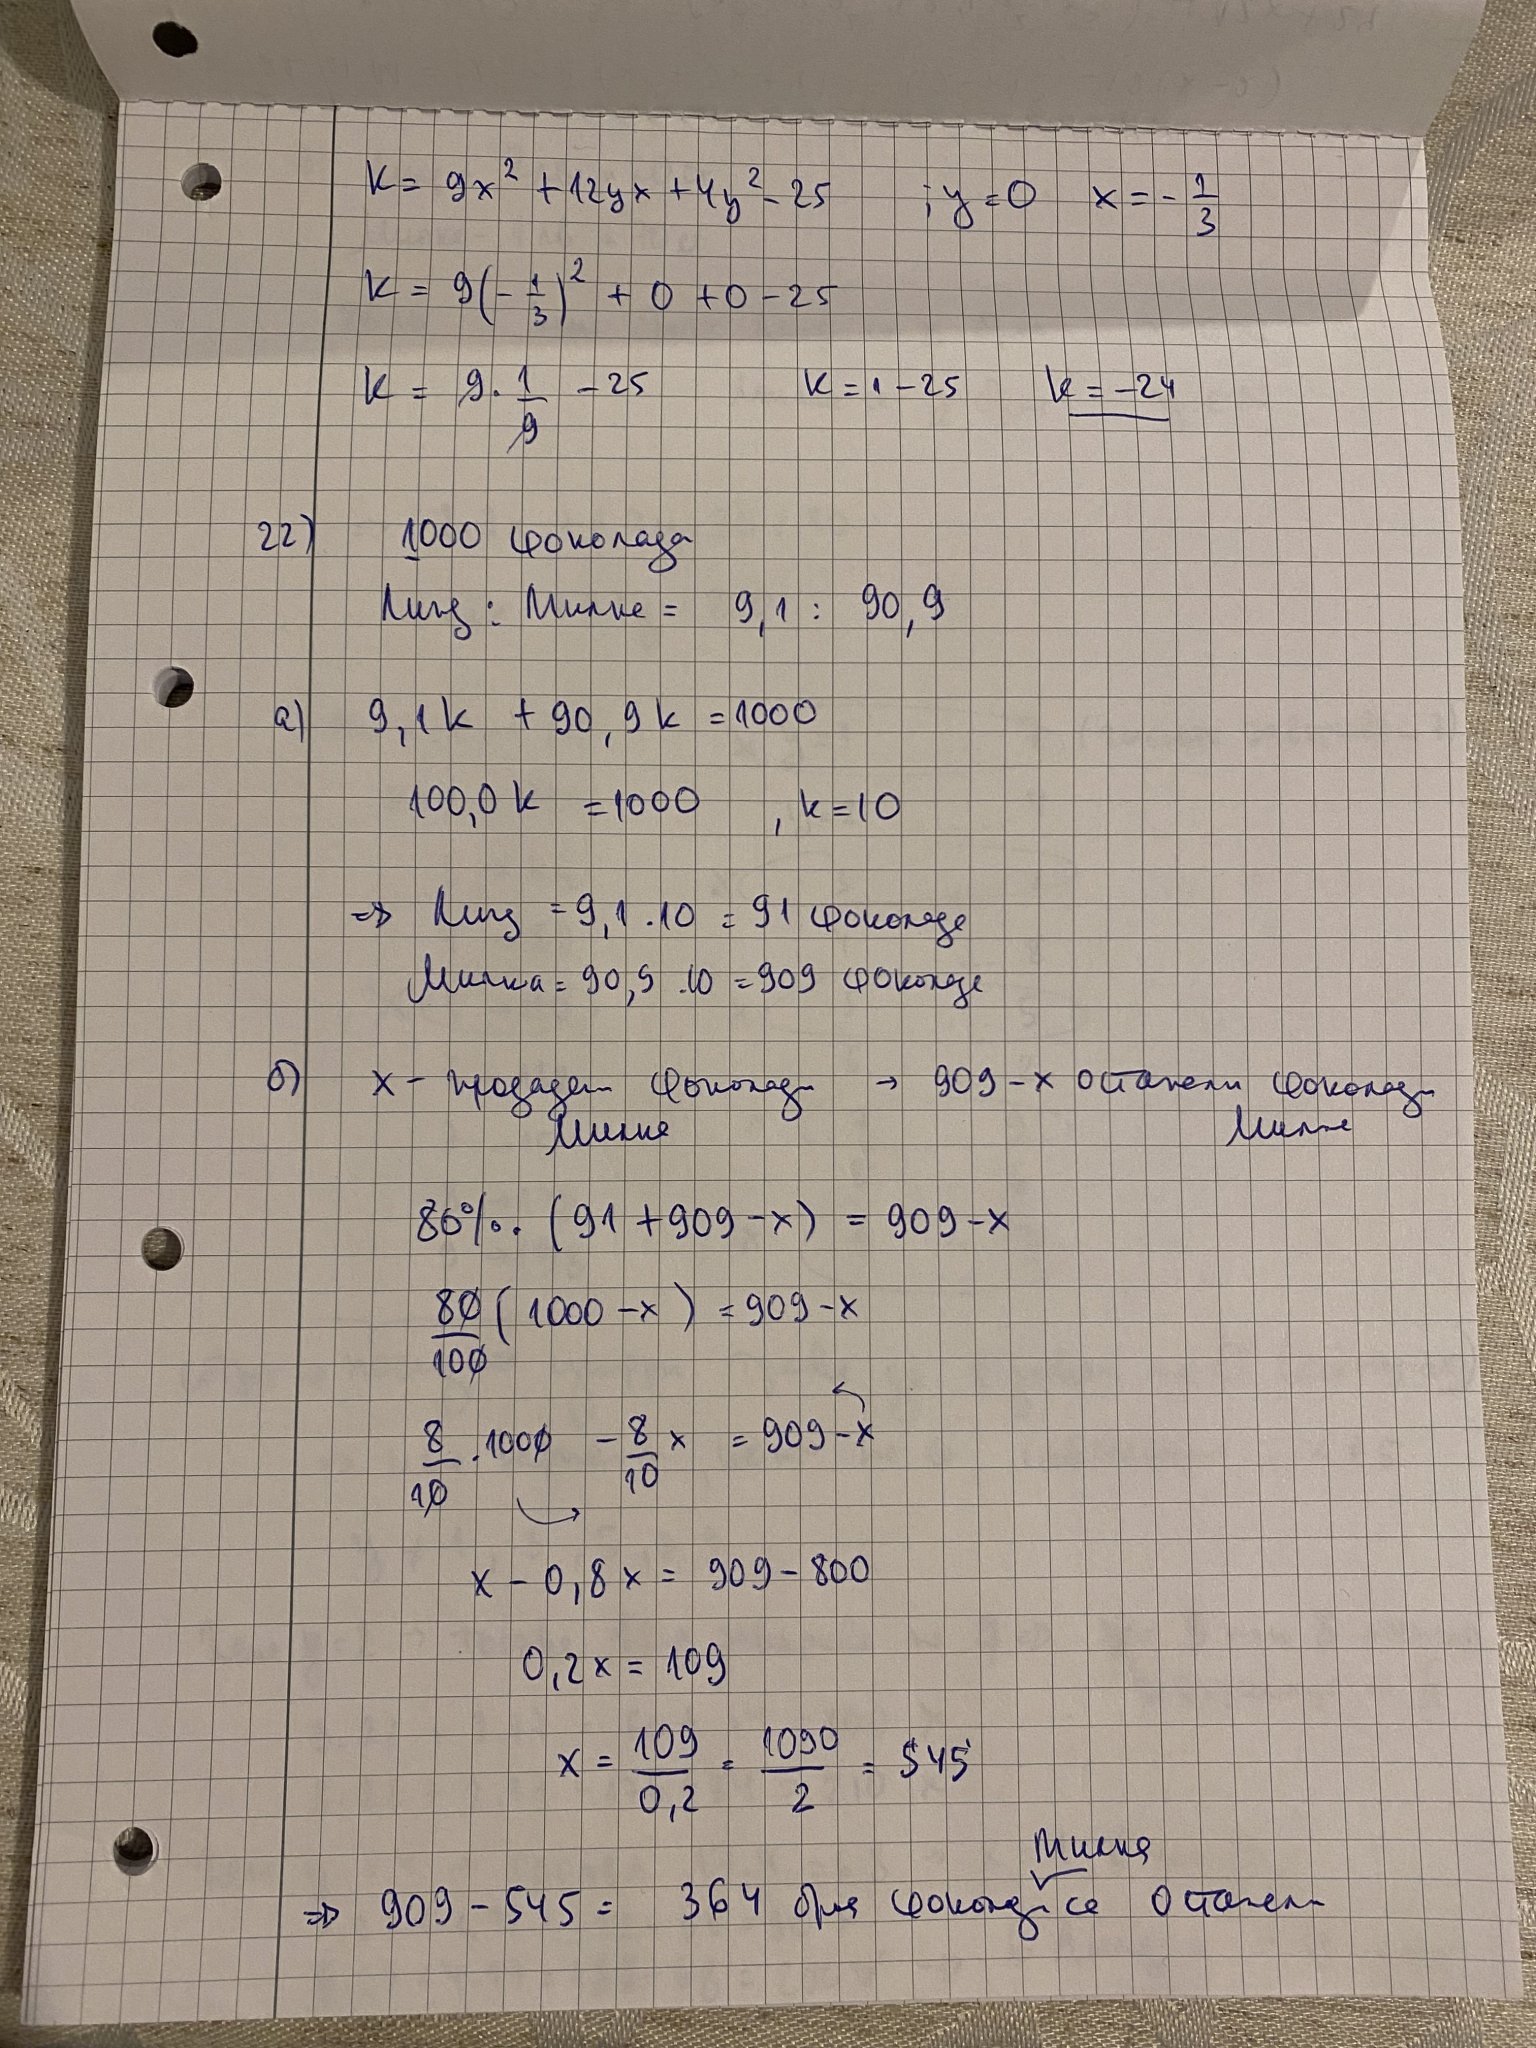 K = 9x² + 12yx + 4y² - 25 ; y = 0 x = - 1/3
K = 9(- 1/3)² + 0 + 0 - 25
K = 9 . 1/9 - 25 K = 1 - 25 K = -24
22) 1000 шоколада
Линд : Милка = 9,1 : 90,9
а) 9,1k + 90,9k = 1000
100,0k = 1000 , k = 10
=> Линд = 9,1 . 10 = 91 шоколада
Милка = 90,9 . 10 = 909 шоколада
б) x - продадени шоколади → 909 - x останали шоколади
Милка Милка
80% . (91 + 909 - x) = 909 - x
80/100 (1000 - x) = 909 - x
8/10 . 1000 - 8/10 x = 909 - x
x - 0,8x = 909 - 800
0,2x = 109
x = 109/0,2 = 1090/2 = 545
Милка
=> 909 - 545 = 364 броя шоколади са останали